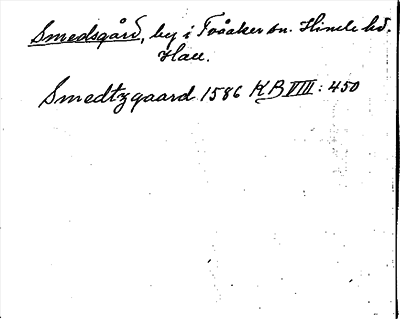 Smedsgård, by i Tvååker sn. Himle hd.
Hall.
Smedtzgaard 1586 KB VIII: 450